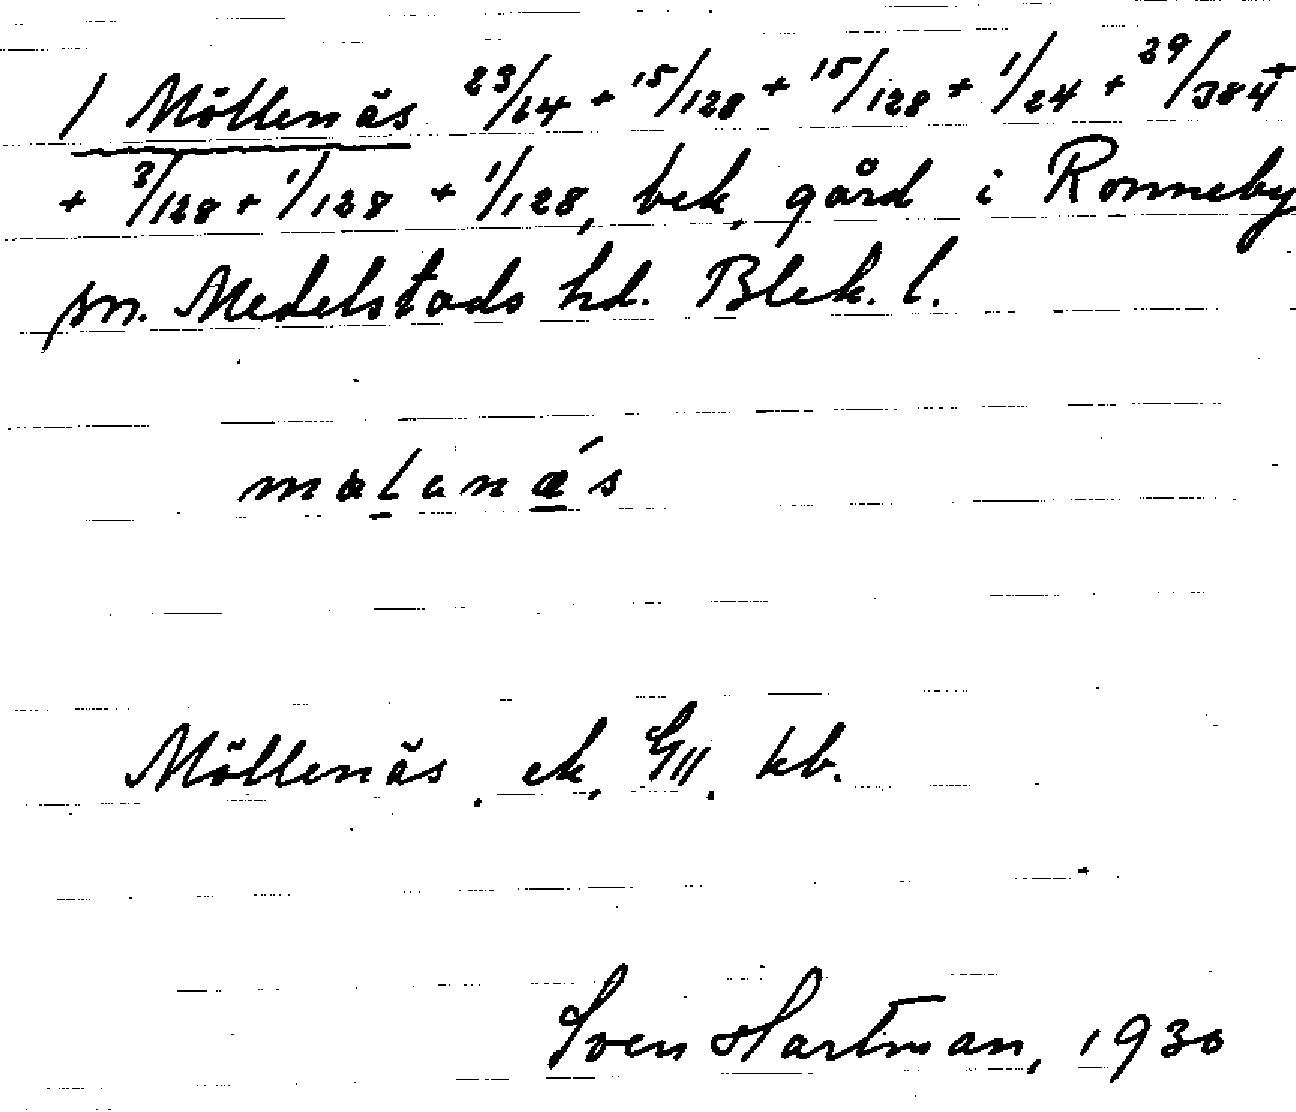 1 Möllenäs 23/64 + 15/128 + 15/128 + 1/24 + 29/384 +
+ 3/128 + 1/128 + 1/128, bek. gård i Ronneby
sn. Medelstads hd. Blek. l.
malanä́s
Möllenäs. ek. GII. kb.
Sven Hartman, 1930